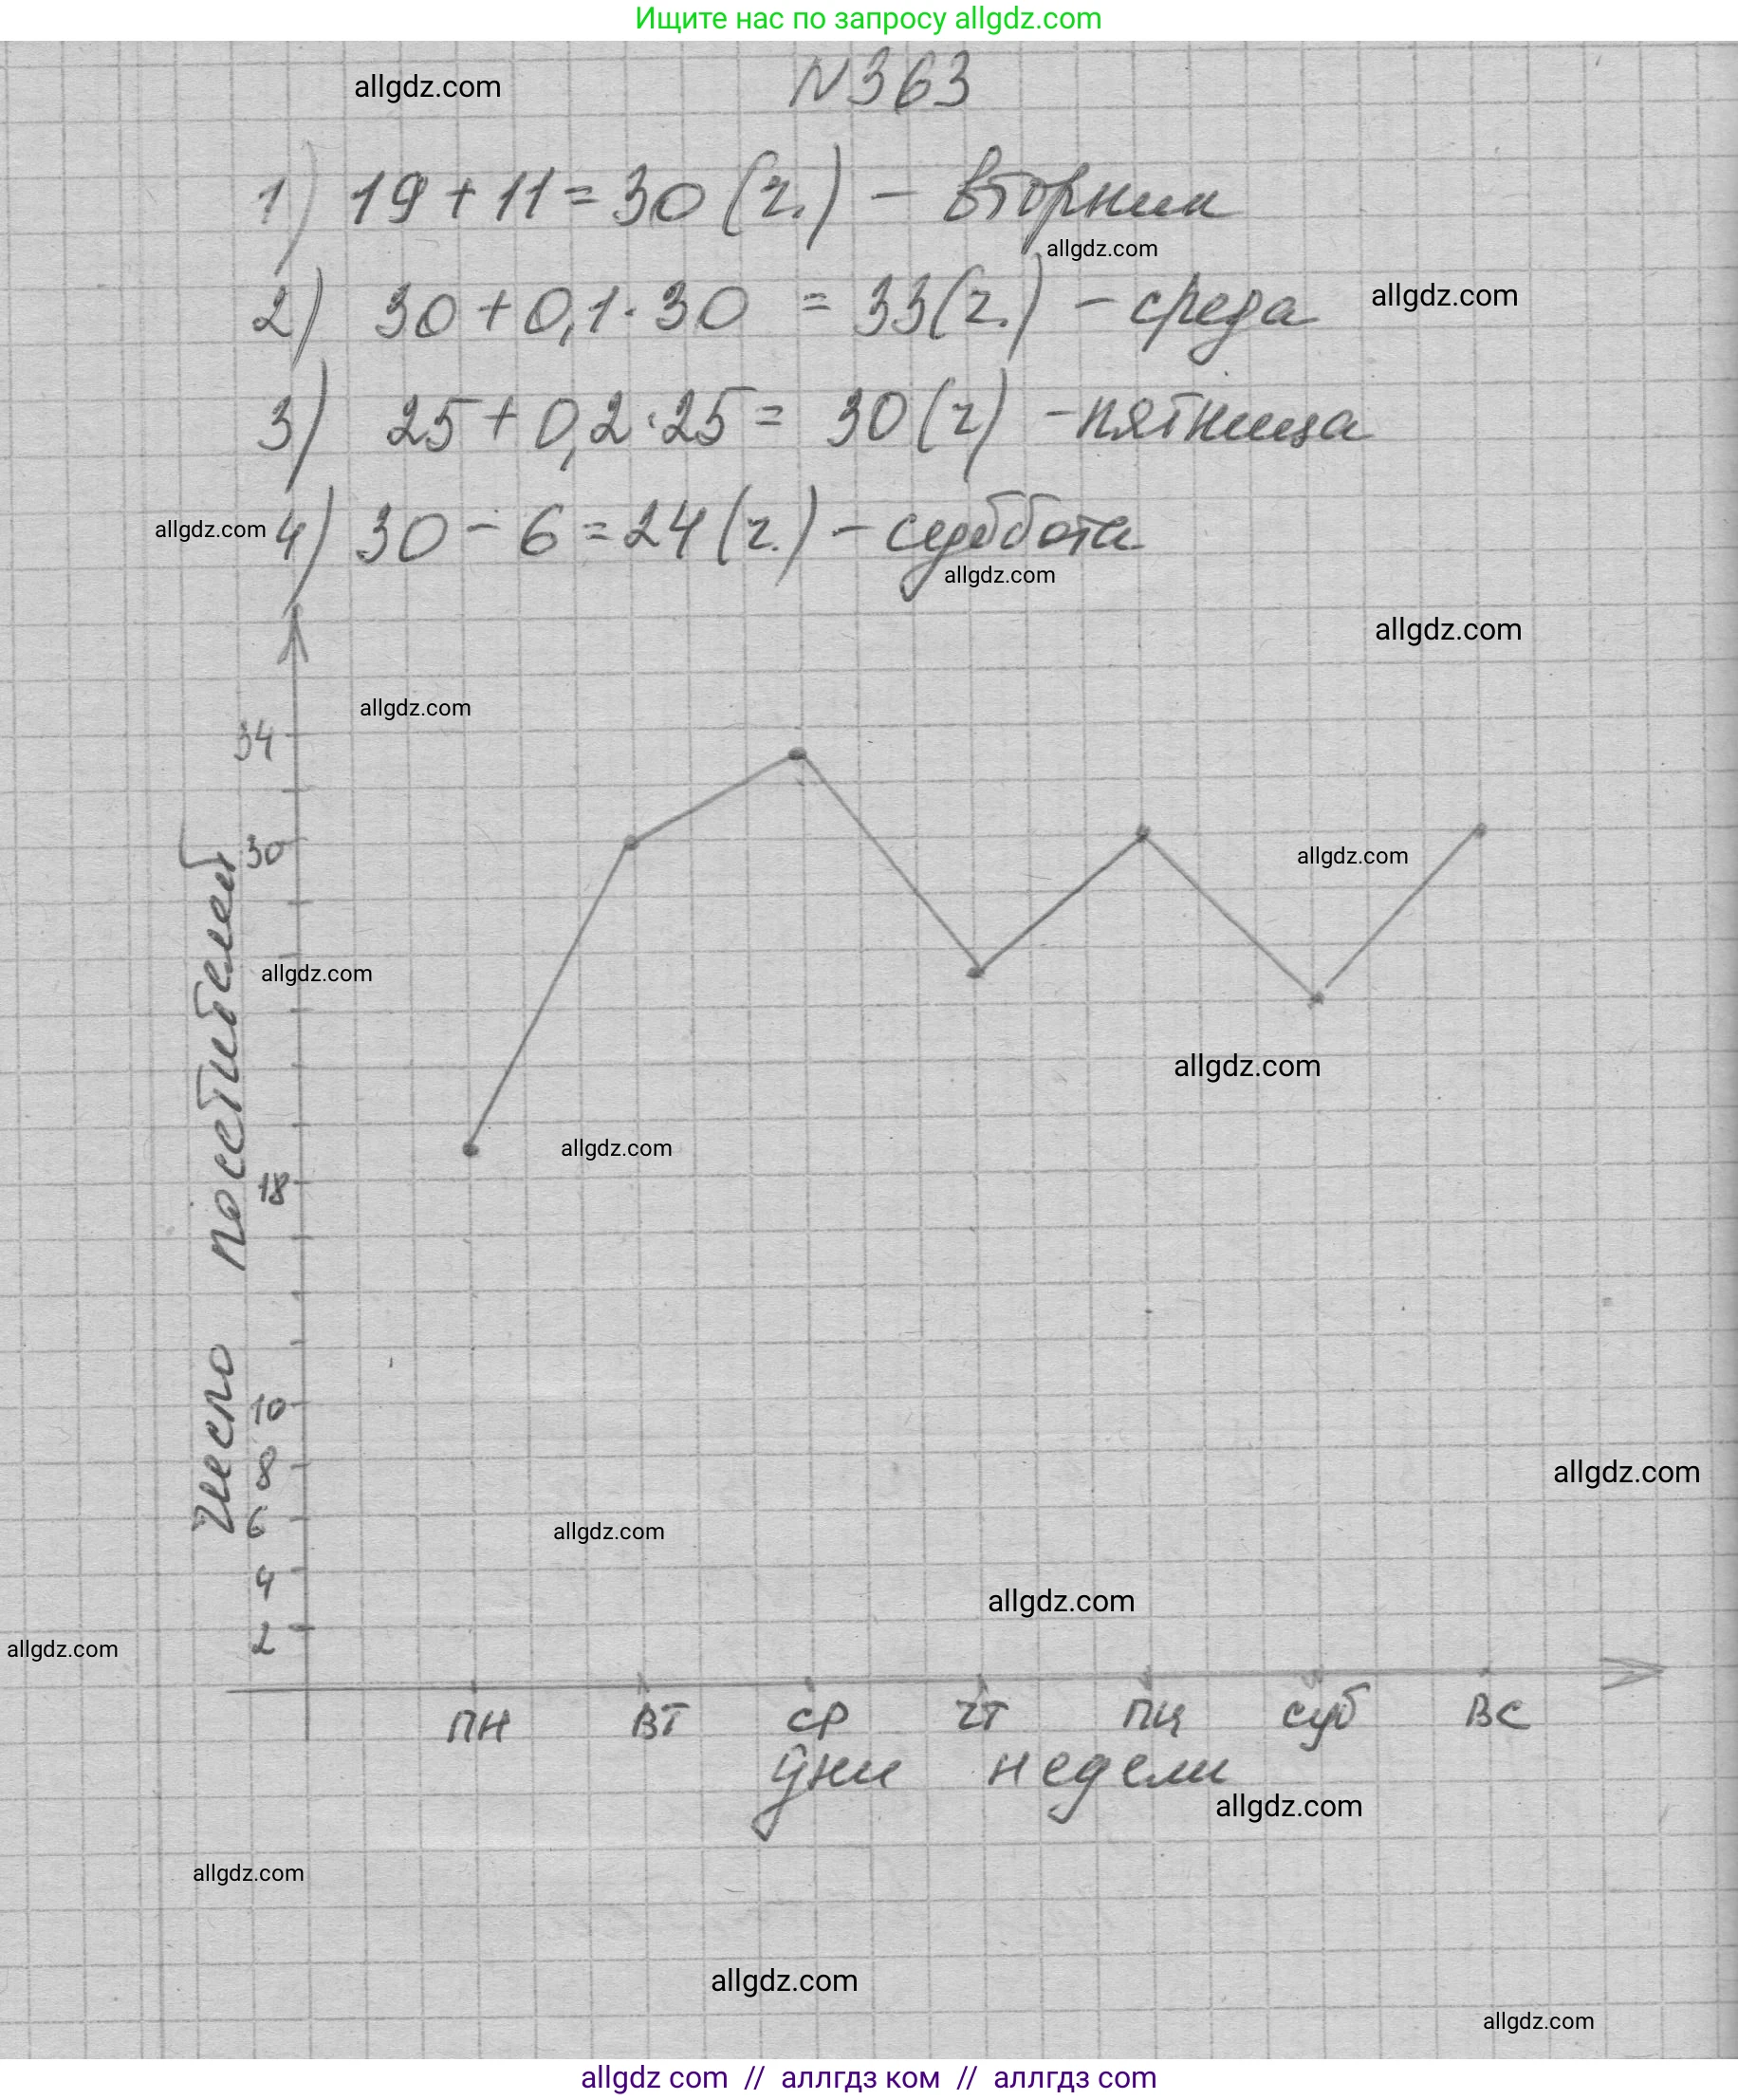 Ищите нас по запросу allgdz.com
allgdz.com
N363
1) 19 + 11 = 30 (ч.) – вторник
allgdz.com
2) 30 + 0,1 · 30 = 33 (ч.) – среда
allgdz.com
3) 25 + 0,2 · 25 = 30 (ч) – пятница
allgdz.com
4) 30 – 6 = 24 (ч.) – суббота
allgdz.com
allgdz.com
allgdz.com
34
30
allgdz.com
allgdz.com
allgdz.com
allgdz.com
18
10
8
allgdz.com
6
allgdz.com
4
allgdz.com
2
allgdz.com
Число посетителей
пн вт ср чт пц суб вс
дни недели
allgdz.com
allgdz.com
allgdz.com
allgdz.com
allgdz com // аллгдз ком // аллгдз com